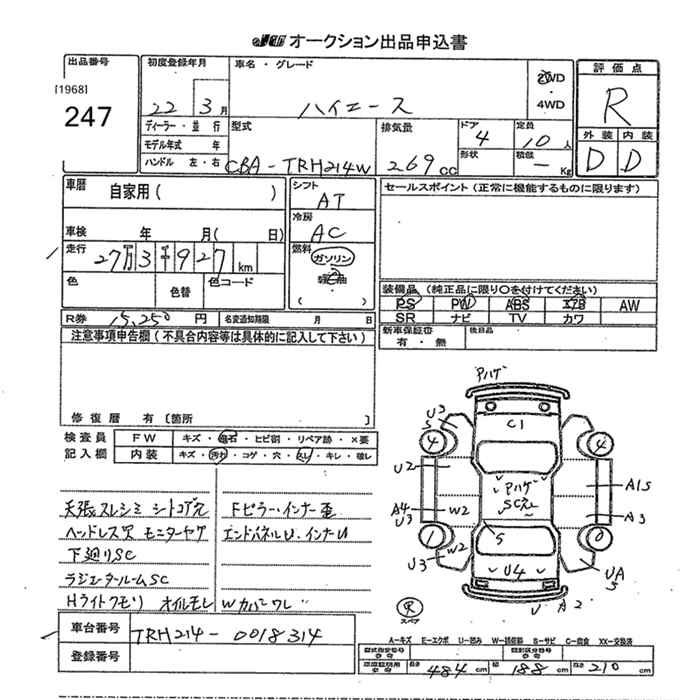 JU オークション出品申込書
出品番号
[1968]
247
初度登録年月
22 3月
車名・グレード
ハイエース
2WD
・
4WD
評価点
R
ディーラー・並行
モデル年式 年
ハンドル 左・右
型式
CBA-TRH214W
排気量
269cc
ドア
4
定員
10人
形状
積載
- Kg
外装 内装
D D
車暦
自家用( )
シフト
AT
セールスポイント(正常に機能するものに限ります)
車検 年 月( 日)
冷房
AC
走行
27万3千927km
燃料
ガソリン
軽油
( )
色
色替
色コード
装備品(純正品に限り○を付けてください)
PS PW ABS エアB AW
SR ナビ TV カワ
R券 15,250円
名変通知期限 月 日
新車保証書
有・無
後日品
注意事項申告欄(不具合内容等は具体的に記入して下さい)
修復暦 有〔箇所 〕
検査員
記入欄
FW キズ・飛石・ヒビ割・リペア跡・×要
内装 キズ・汚れ・コゲ・穴・スレ・キレ・破レ
天張スレシミ シートコゲ穴
Fピラー・インナー歪
ヘッドレス穴 モニターヤケ
エンドパネルU.インナーU
下廻りSC
ラジエタールームSC
Hライトクモリ オイルモレ
Wカバーワレ
アハゲ
C1
U3
5
4
4
U2
W2
アハゲ
SC元
A15
A4
U3
A3
1
0
W2
U3
S
U4
UA
5
U
A2
スペア
車台番号
TRH214-0018314
登録番号
A-キズ E-エクボ U-凹み W-補修跡 S-サビ C-腐食 XX-交換済
型式指定番号
類別区分番号
長さ 484cm 幅 188cm 高さ 210cm